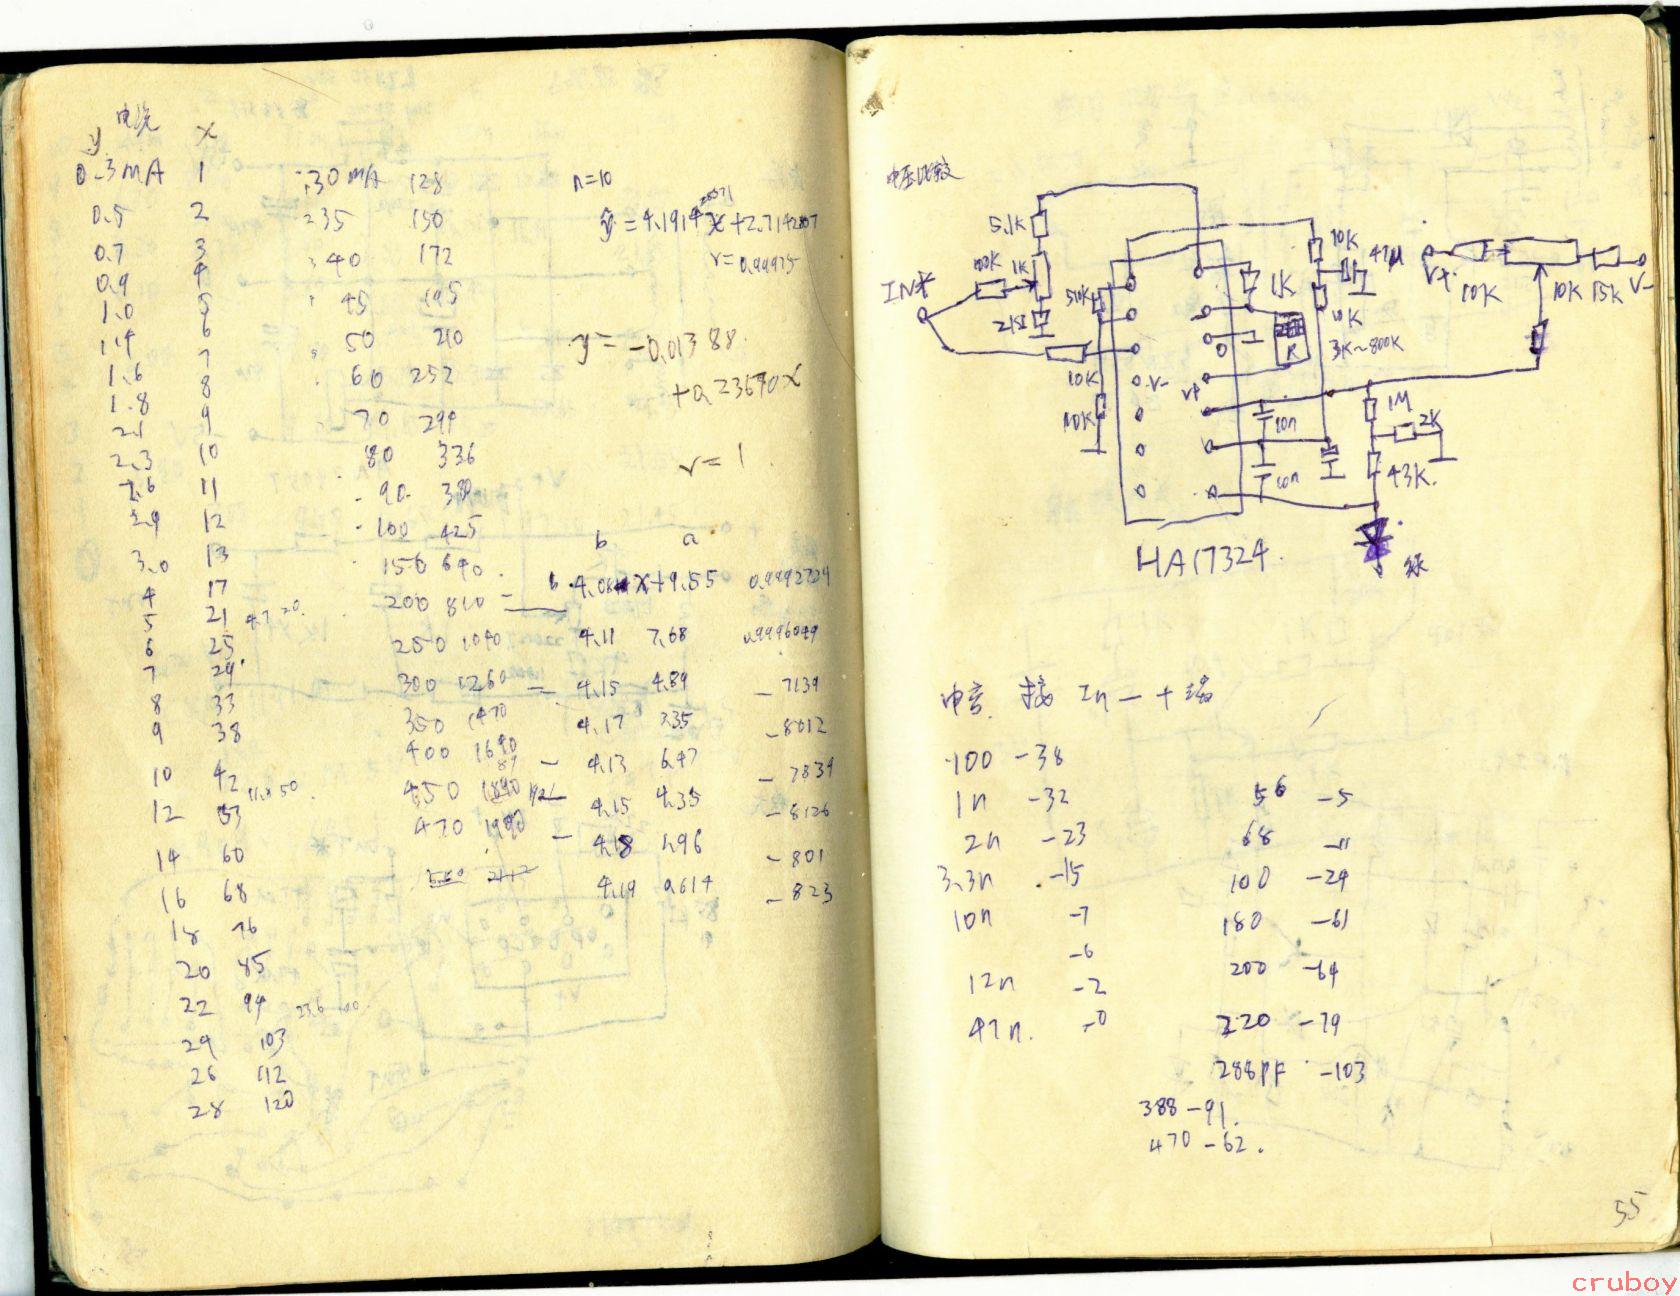 电流
y x
0.3mA 1
0.5 2
0.7 3
0.9 4
1.0 5
1.4 6
1.6 7
1.8 8
2.1 9
2.3 10
2.6 11
2.9 12
3.0 13
4 17
5 21 4.7 20
6 25
7 29
8 33
9 38
10 42
12 53 11.8 50
14 60
16 68
18 76
20 85
22 94 23.6 100
24 103
26 112
28 120
30mA 128
35 150
40 172
45 195
50 210
60 252
70 294
80 336
90 380
100 425
150 640
200 810
250 1040
300 1260
350 1470
400 1690
450 1890
470 1990
n=10
r=0.99975
y=-0.01388
+0.23690x
r=1
b a
x+9.55 0.9992724
4.11 7.68 0.9996049
4.15 4.89 -7139
4.17 3.35 -8012
4.13 6.47 -7839
4.15 4.35 -8126
4.18 1.96 -801
4.19 0.614 -823
电压比较
5.1K
100K 1K
IN*
2K
510K
10K
10K
V-
V+
1K
R
10K 47M
10K
3K~800K
10n
10n
V+ 10K 10K 15K V-
1M
2K
43K.
HA17324.
绿
电容 接 In - + 端
100 -38
1n -32
2n -23
3.3n -15
10n -7
-6
12n -2
47n. -0
56 -5
68 -11
100 -24
180 -61
200 -64
220 -79
288PF -103
388 -91.
470 -62.
55
cruboy